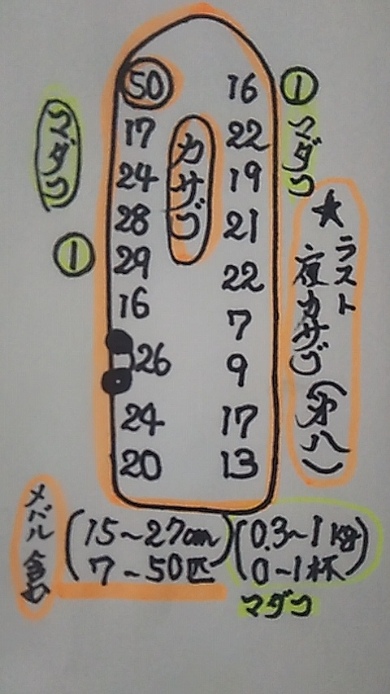 50 16 ①
17 22
24 19
28 21
29 22
16 7
26 9
24 17
20 13
カサゴ
マダコ
①
マダコ
★ラスト
夜カサゴ(中八)
メバル含む
(15~27cm)
7~50匹
(0.3~1kg)
0~1杯
マダコ